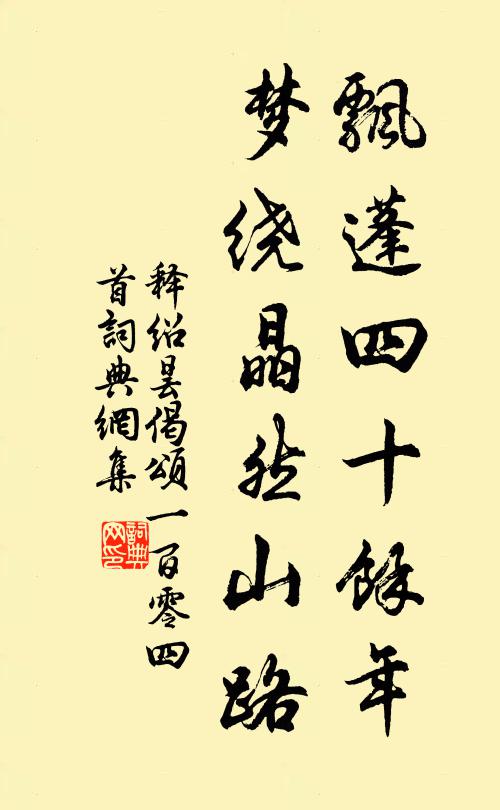 飄蓬四十餘年
梦绕晶然山路
释绍昙偈頌一百零四
首詞典網集
詞典网印